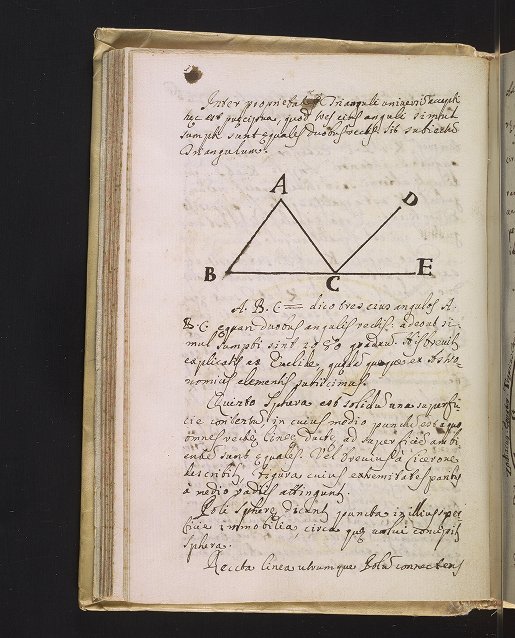 Inter proprietates Trianguli universi accepti
hec est precipua, quod tres eius anguli simul
sumpti sunt equales duobus rectis sit subiectu
Triangulum.
A
D
B
C
E
A. B. C dico tres eius angulos A.
B C equari duobus angulis rectis: adeout si-
mul sumpti sint 180 graduu. His breuit
explicatis ex Euclide, quedā quoque ex Astro-
nomicis elementis subiicimus.
Quinto Sphera est solidū una superfi-
cie contentū, in cuius medio punctū est a quo
omnes recte linee ducte ad superficiē ambi-
entē sunt equales. Vel brevius à Cicerone
describit, figura cuius extremitates paribus
à medio radiis attingunt.
Poli Sphere dicunt puncta in illius per
ficie immobilia, circa que volui concipit
Sphera.
Recta linea utrumque Polū connectens